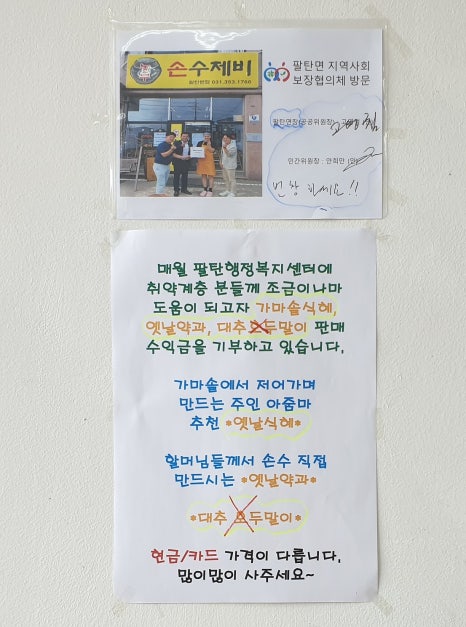 손수제비
팔탄면점 031.353.1766
팔탄면 지역사회
보장협의체 방문
팔탄면장(공공위원장)
민간위원장 : 안희만 (인)
번창 하세요!!
매월 팔탄행정복지센터에
취약계층 분들께 조금이나마
도움이 되고자 가마솥식혜,
옛날약과, 대추호두말이 판매
수익금을 기부하고 있습니다.
가마솥에서 저어가며
만드는 주인 아줌마
추천 *옛날식혜*
할머님들께서 손수 직접
만드시는 *옛날약과*
*대추호두말이*
현금/카드 가격이 다릅니다.
많이많이 사주세요~